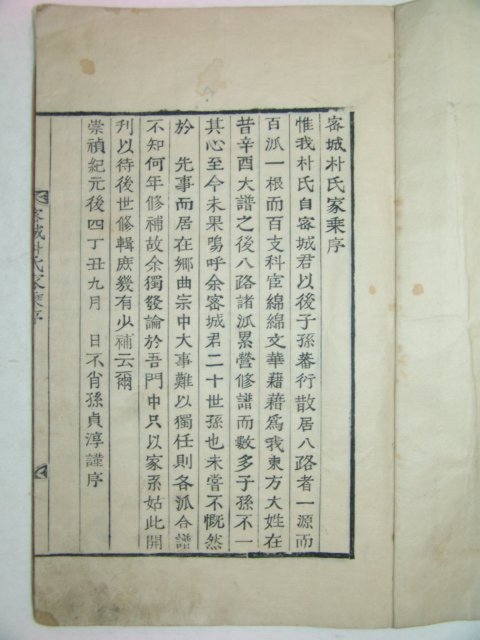 密城朴氏家乘序
惟我朴氏自密城君以後子孫蕃衍散居八路者一源而
百派一根而百支科宦綿綿文華藉藉爲我東方大姓在
昔辛酉大譜之後八路諸派累營修譜而數多子孫不一
其心至今未果嗚呼余密城君二十世孫也未嘗不慨然
於 先事而居在鄉曲宗中大事難以獨任則各派合譜
不知何年修補故余獨發論於吾門中只以家系姑此開
刋以待後世修輯庶幾有少補云爾
崇禎紀元後四丁丑九月 日不肖孫貞淳謹序
密城朴氏家乘序